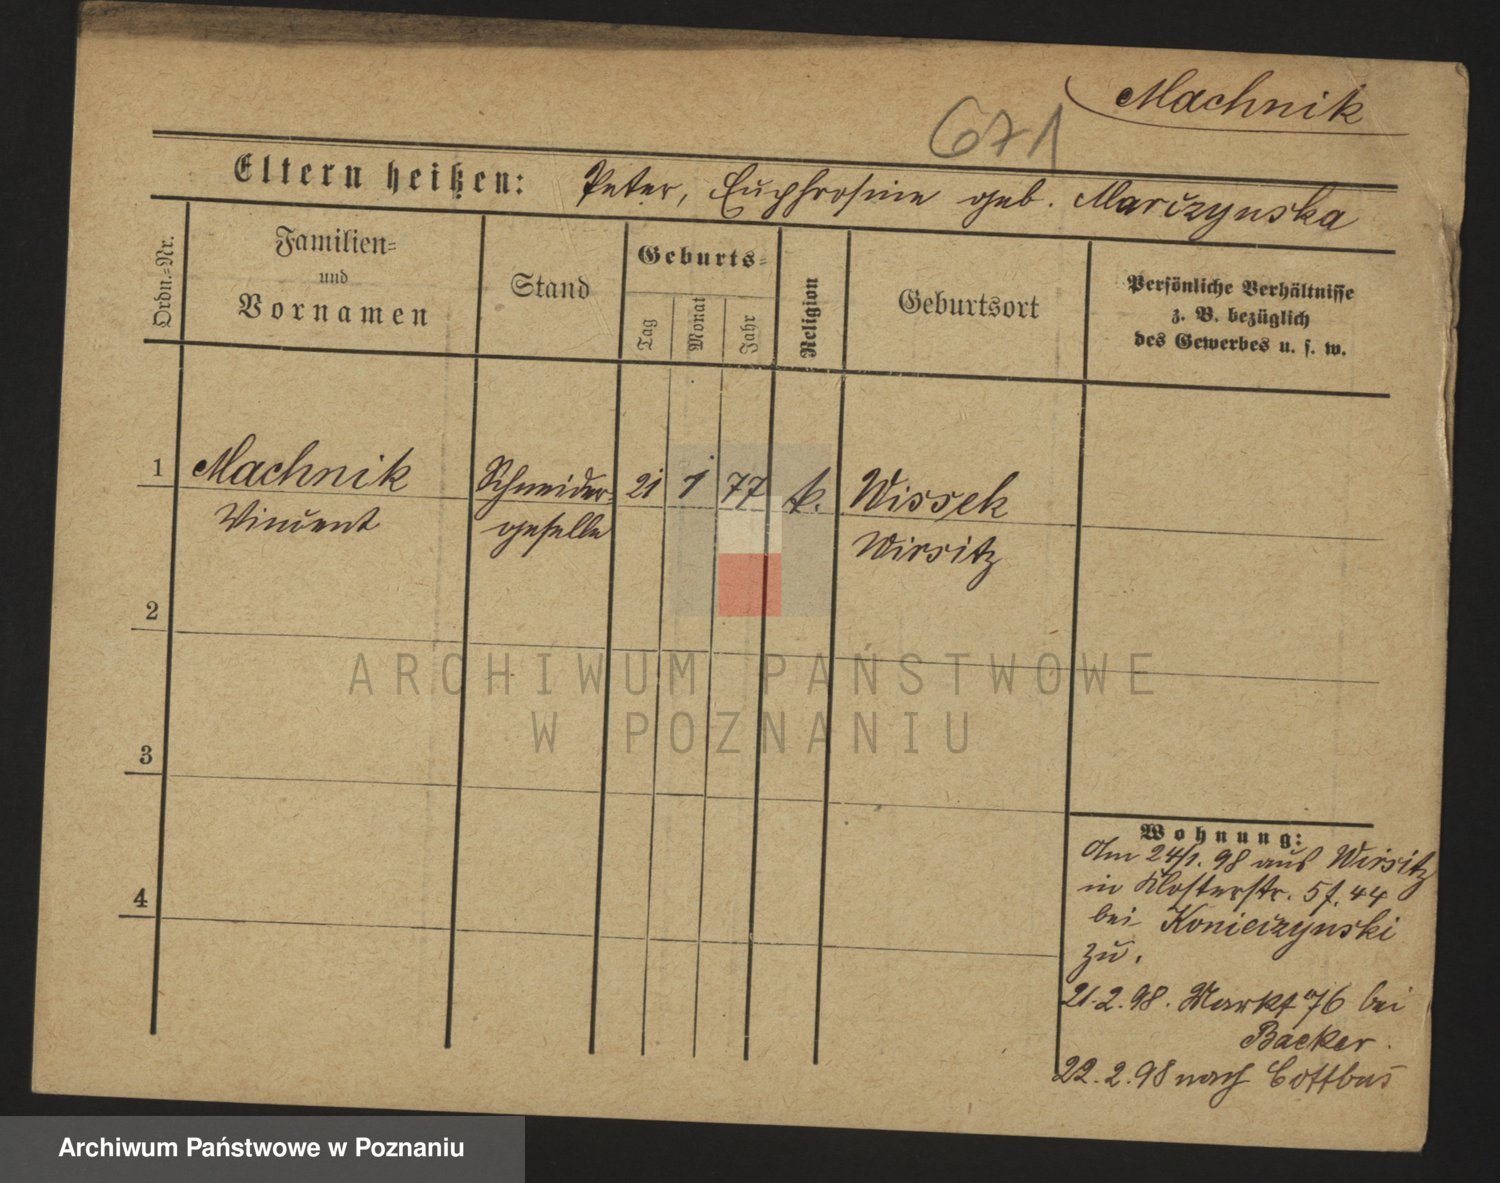 Machnik
671
Eltern heißen: Peter, Euphrosine geb. Marczynska
Ordn.-Nr.
Familien-
und
Vornamen
Stand
Geburts-
Tag
Monat
Jahr
Religion
Geburtsort
Persönliche Verhältnisse
z. B. bezüglich
des Gewerbes u. s. w.
1
Machnik
Vincent
Schneider-
geselle
21
1
77
k.
Wissek
Wirsitz
2
3
4
Wohnung:
Am 24/1. 98 aus Wirsitz
in Klosterstr. 44
bei Konieczynski
zu.
21.2.98. Markt 76 bei
Backer.
22.2.98 nach Cottbus
ARCHIWUM PAŃSTWOWE
W POZNANIU
Archiwum Państwowe w Poznaniu